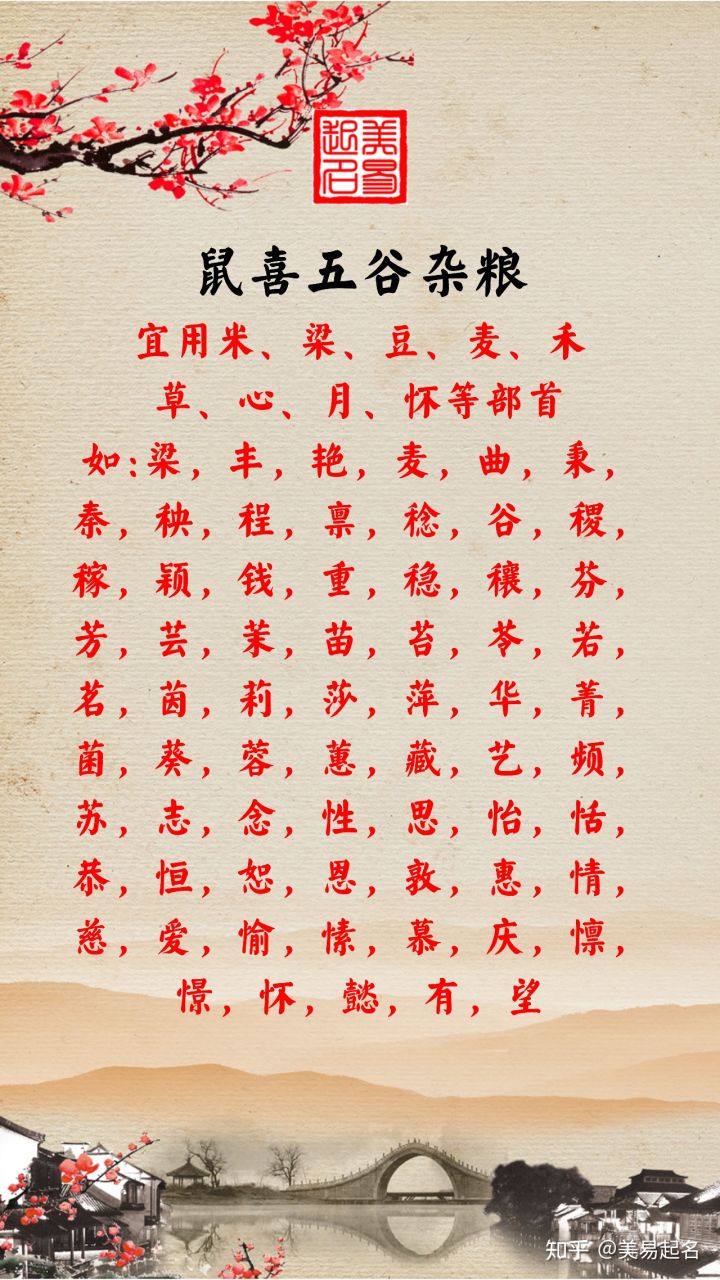 美易起名
鼠喜五谷杂粮
宜用米、梁、豆、麦、禾
草、心、月、怀等部首
如:梁，丰，艳，麦，曲，秉，
秦，秧，程，禀，稔，谷，稷，
稼，颖，钱，重，稳，穰，芬，
芳，芸，茉，苗，苔，苓，若，
茗，茵，莉，莎，萍，华，菁，
菌，葵，蓉，蕙，藏，艺，频，
苏，志，念，性，思，怡，恬，
恭，恒，恕，恩，敦，惠，情，
慈，爱，愉，愫，慕，庆，懔，
憬，怀，懿，有，望
知乎 @美易起名